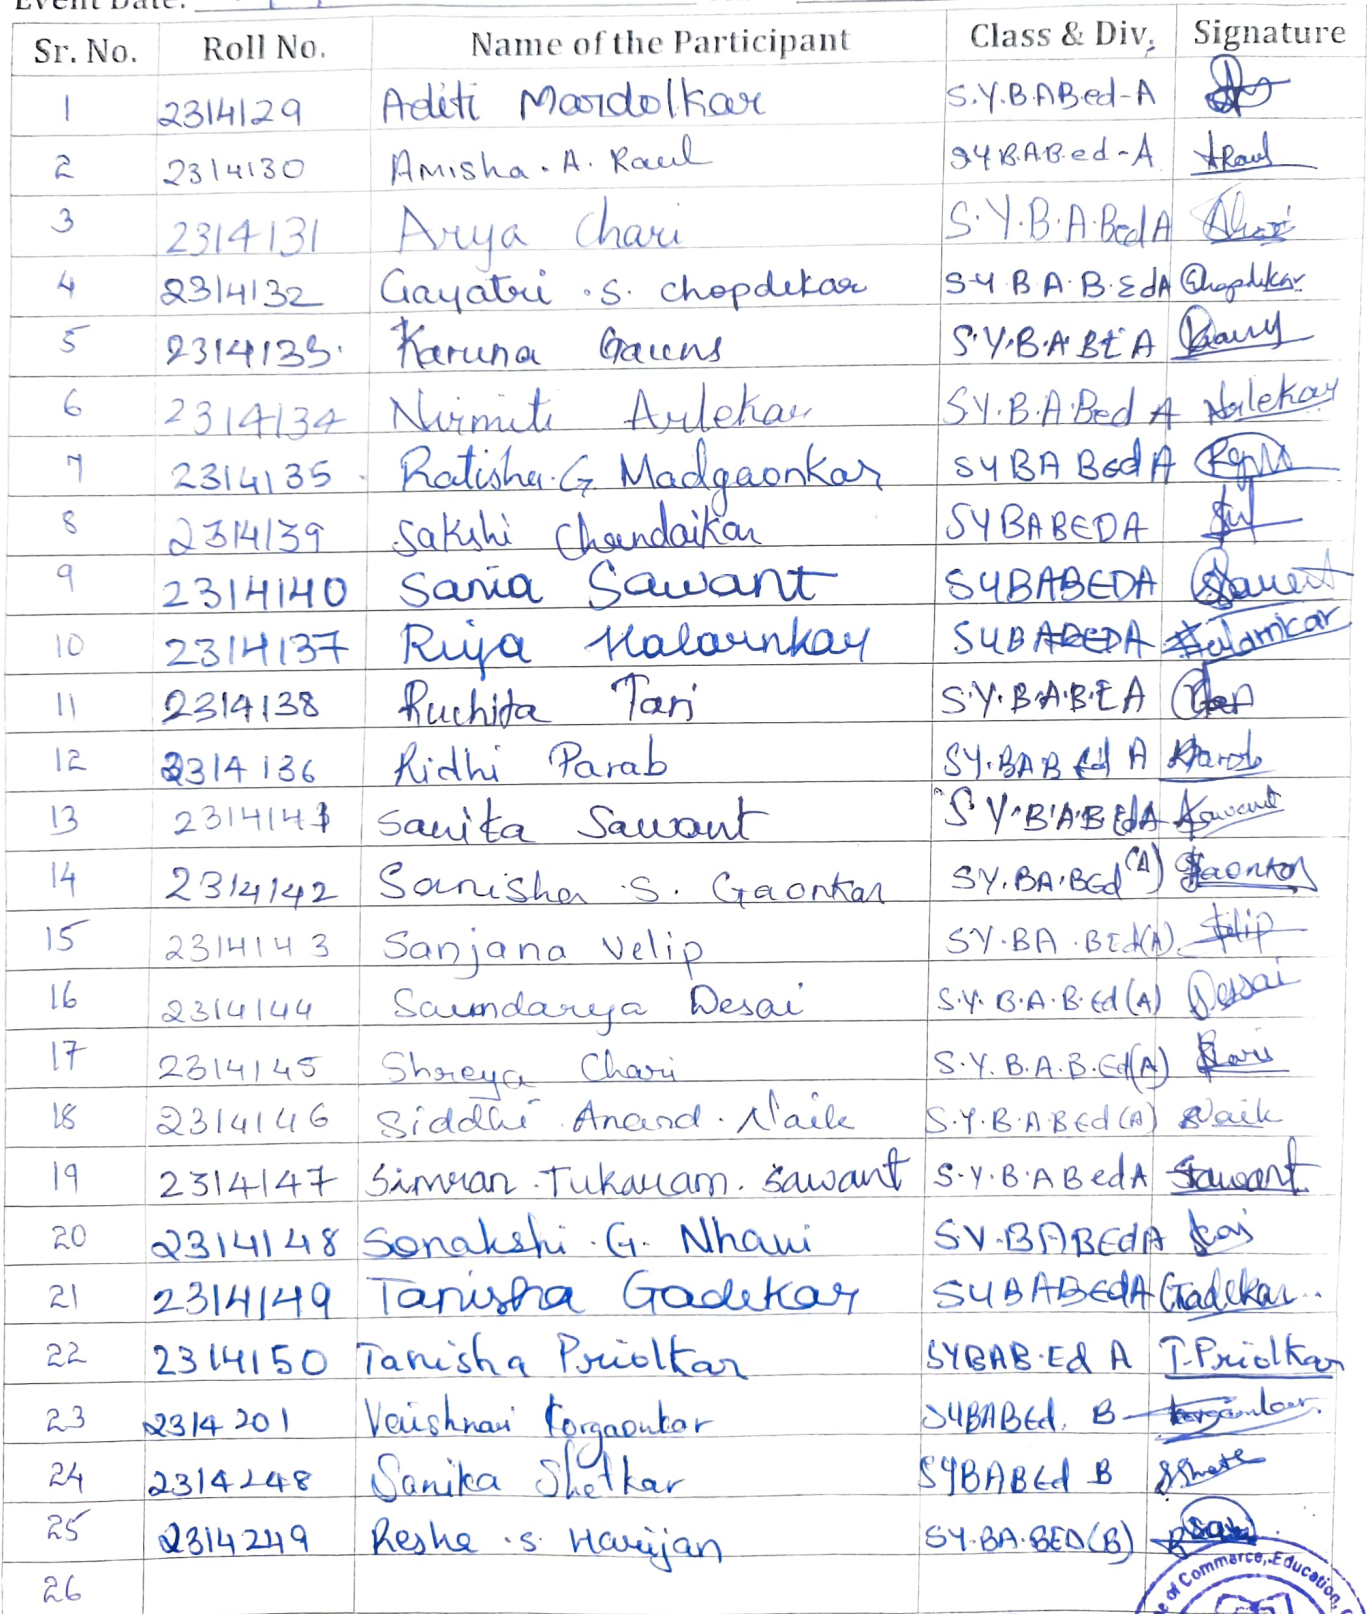 Event Date:
Sr. No. Roll No. Name of the Participant Class & Div. Signature
1 2314129 Aditi Mardolkar S.Y.B.ABed-A
2 2314130 Amisha. A. Raul SYB.A.B.ed-A ARaul
3 2314131 Arya Chari S.Y.B.A.Bed A
4 2314132 Gayatri .S. Chopdekar SY B.A.B.EdA Chopdekar
5 2314133. Karuna Gauns S.Y.B.A BE A
6 2314134 Nirmiti Arlekar SY.B.A.Bed A Narlekar
7 2314135 Ratisha.G. Madgaonkar SYBA BEd A
8 2314139 Sakshi Chandaikar SYBABEDA
9 2314140 Sania Sawant SYBABEDA Sawant
10 2314137 Riya Malarnkar SYBABEDA
11 2314138 Ruchita Tari S.Y.B.A.B.E A
12 2314136 Ridhi Parab SY.BAB Ed A Parab
13 2314141 Sanika Sawant S Y.B.A.B EdA Sawant
14 2314142 Sanisha .S. Gaonkar SY.BA.BEd (A) Gaonkar
15 2314143 Sanjana Velip SY.BA.BEd(A) Velip
16 2314144 Saundarya Desai S.Y. B.A.B.Ed(A) Dessai
17 2314145 Shreya Chari S.Y.B.A.B.Ed(A)
18 2314146 Siddhi Anand. Naik S.Y.B.A.BEd(A) SNaik
19 2314147 Simran .Tukaram. Sawant S.Y.B.A BedA Sawant
20 2314148 Sonakshi .G. Nhavi SY.BABEdA
21 2314149 Tanisha Gadekar SYBABEdA Gadekar..
22 2314150 Tanisha Priolkar SYBAB.Ed A T.Priolkar
23 2314201 Vaishnavi Korgaonkar SYBABEd. B
24 2314248 Sanika Shetkar SYBABEd B
25 2314249 Resha .S. Harijan SY.BA.BED(B)
26
of Commerce, Education,